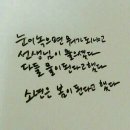 눈이 녹으면 뭐가 되냐고
선생님이 물으셨다
다들 물이 된다고 했다
소년은 봄이 된다고 했다